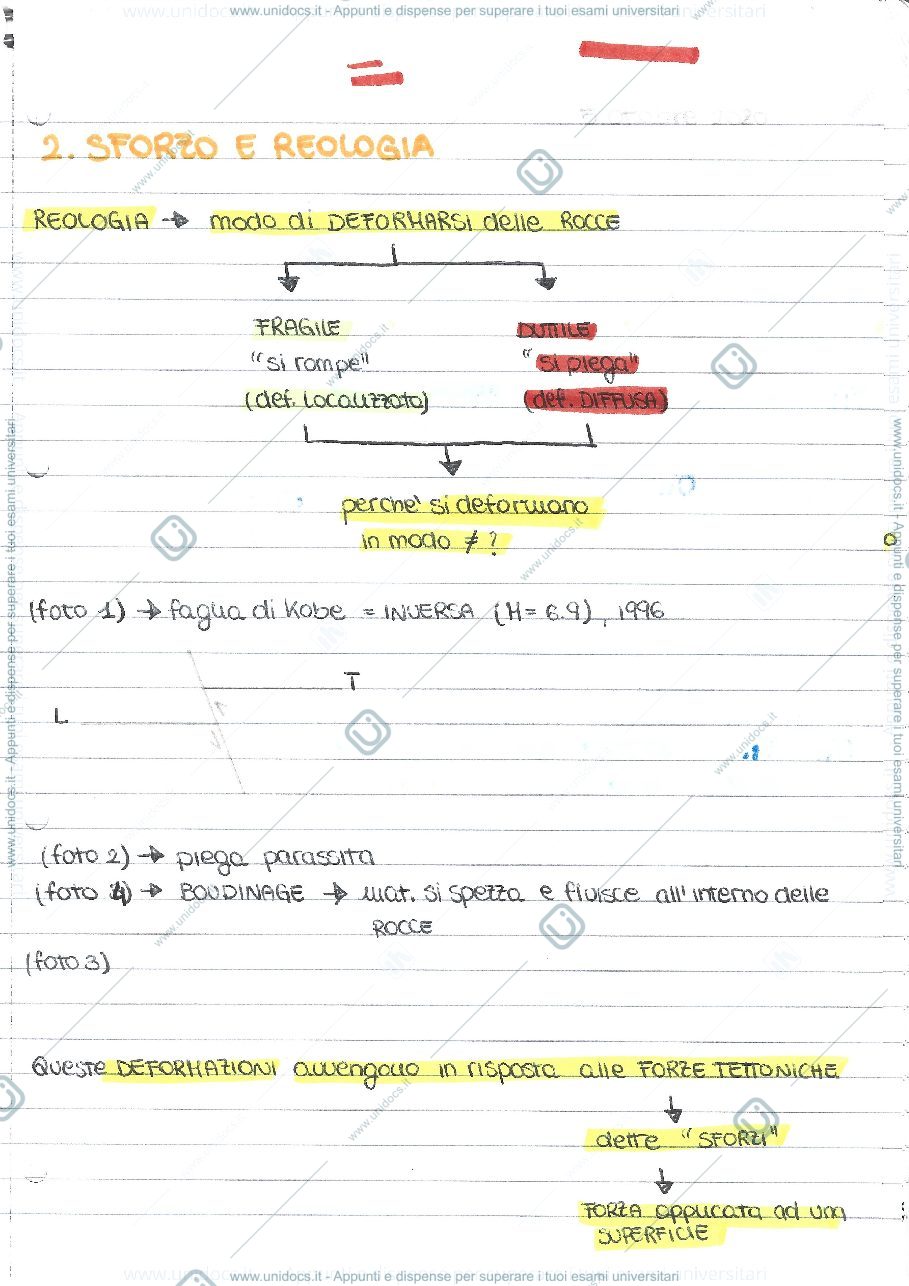 www.unidocs.it - Appunti e dispense per superare i tuoi esami universitari
2. SFORZO E REOLOGIA
REOLOGIA → modo di DEFORMARSI delle ROCCE
FRAGILE DUTTILE
"si rompe" "si piega"
(def. LOCALIZZATA) (def. DIFFUSA)
perche' si deformano
in modo ≠ ?
(foto 1) → faglia di Kobe = INVERSA (M = 6.9), 1996
T
L
(foto 2) → piega parassita
(foto 4) → BOUDINAGE → mat. si spezza e fluisce all'interno delle
ROCCE
(foto 3)
Queste DEFORMAZIONI avvengono in risposta alle FORZE TETTONICHE
dette "SFORZI"
FORZA applicata ad una
SUPERFICIE
www.unidocs.it - Appunti e dispense per superare i tuoi esami universitari